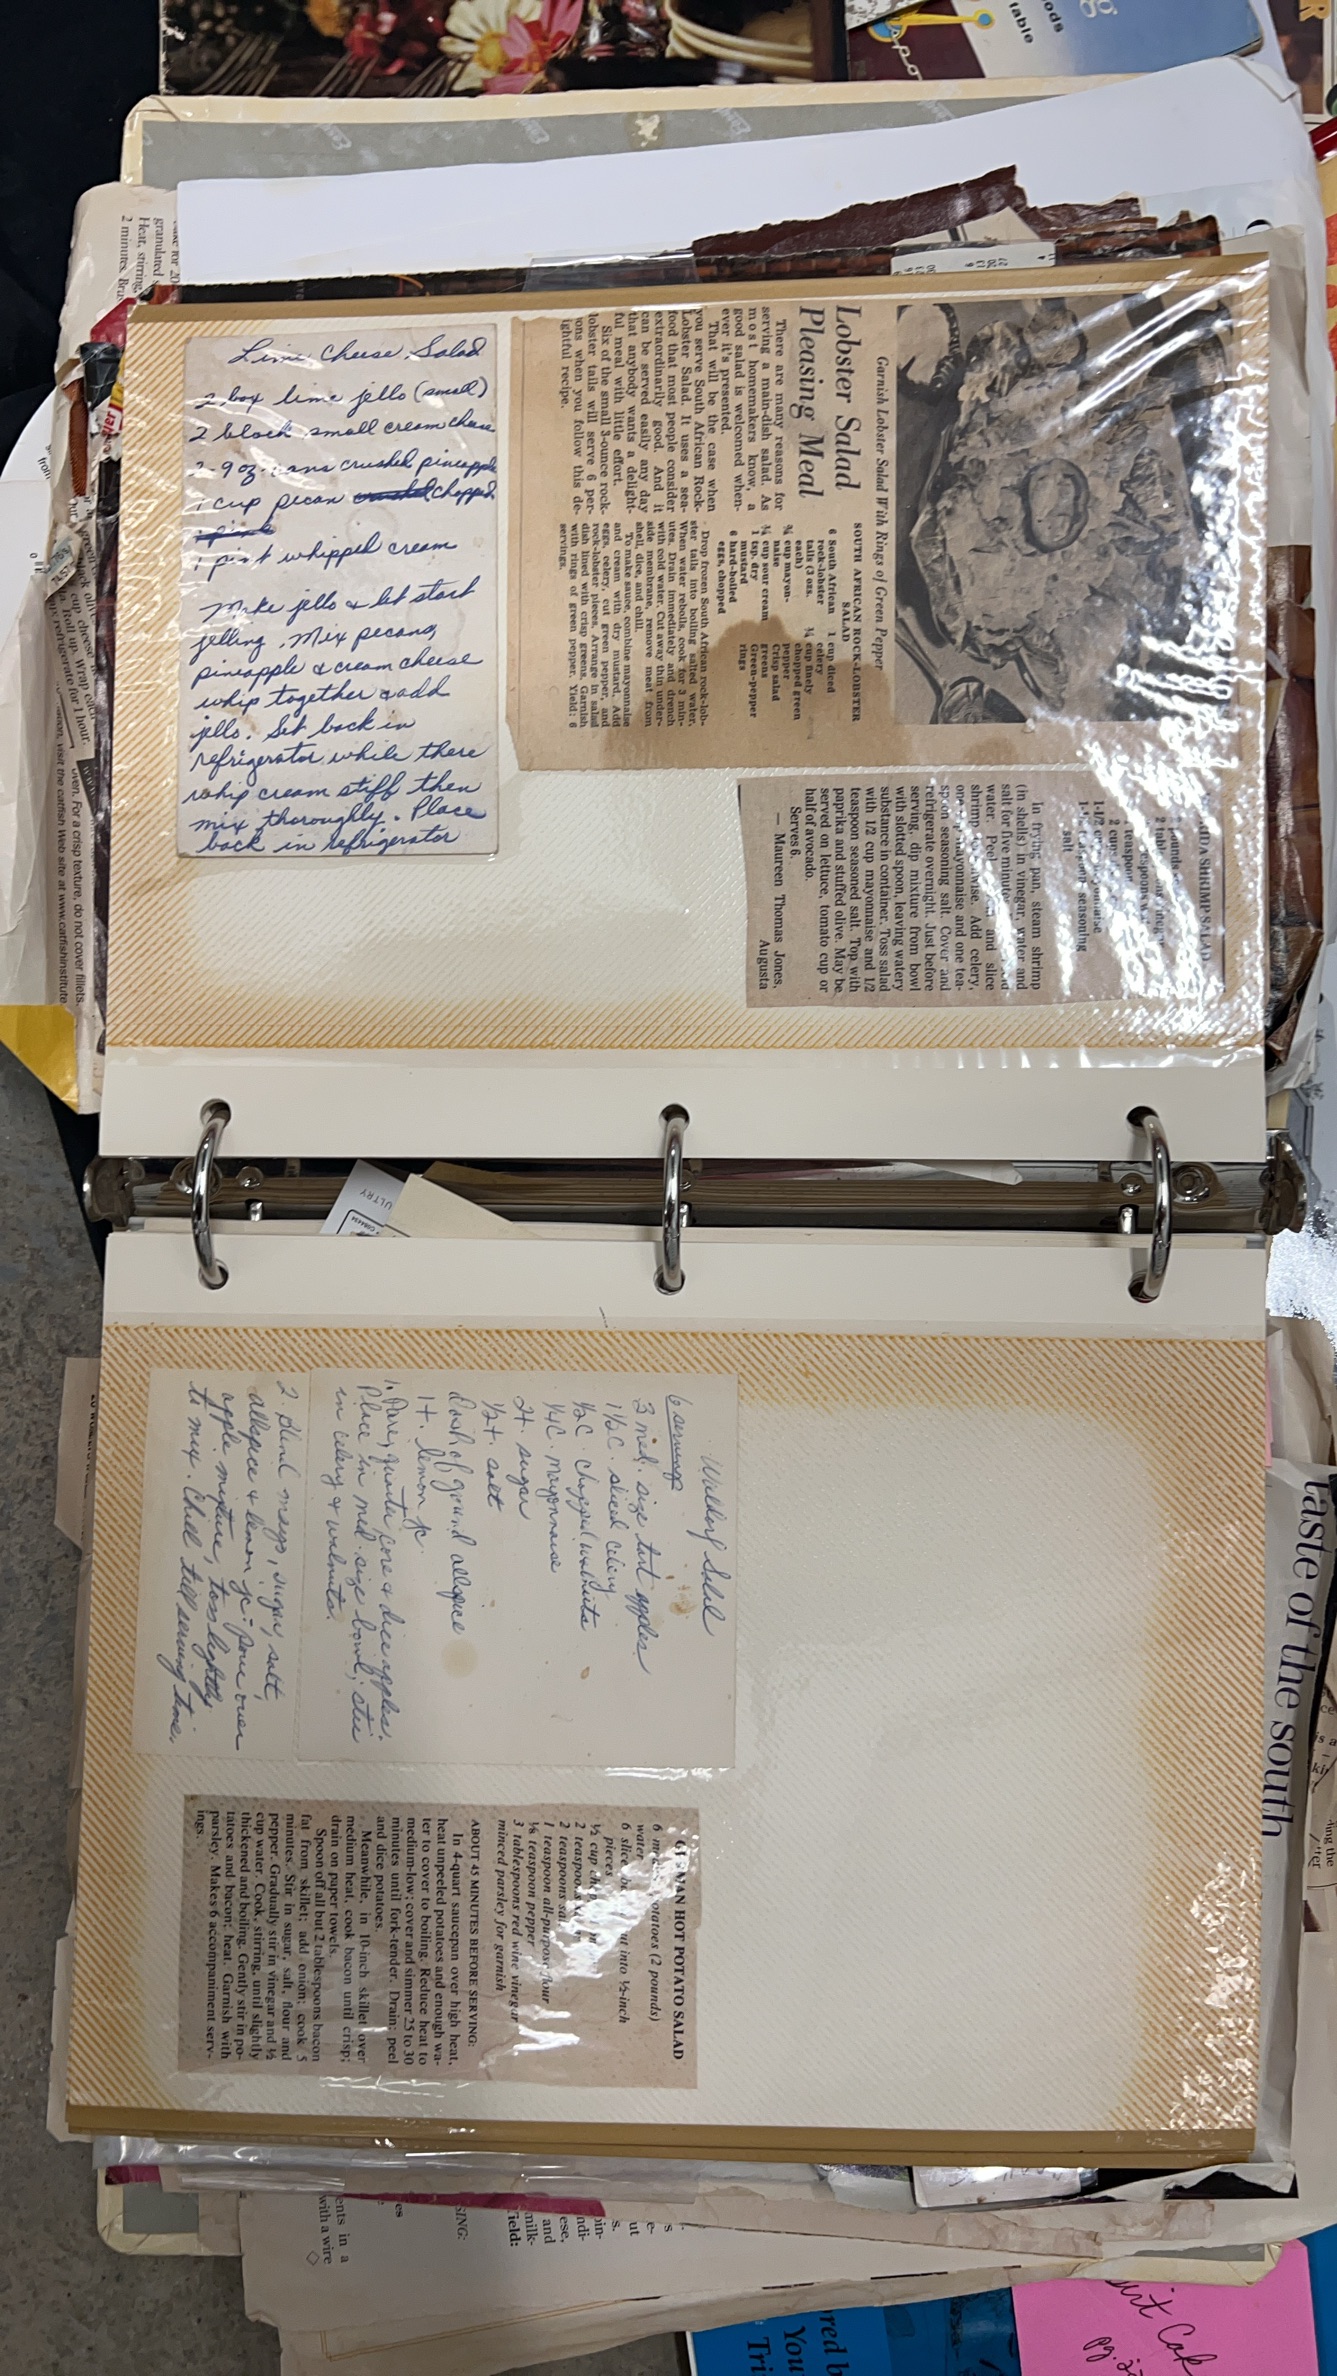 Lime Cheese Salad
2 box lime jello (small)
2 block small cream cheese
2- 9 oz. cans crushed pineapple
1 cup pecan crushed chopped
1 pint
1 pint whipped cream
Make jello & let start
jelling. Mix pecans,
pineapple & cream cheese
whip together & add
jello. Set back in
refrigerator while there
whip cream stiff then
mix thoroughly. Place
back in refrigerator
Garnish Lobster Salad With Rings of Green Pepper
Lobster Salad
Pleasing Meal
There are many reasons for
serving a main-dish salad. As
most homemakers know, a
good salad is welcomed when-
ever it's presented.
That will be the case when
you serve South African Rock-
Lobster Salad. It uses a sea-
food that most people consider
extraordinarily good. And it
can be served easily any day
that anybody wants a delight-
ful meal with little effort.
Six of the small 3-ounce rock-
lobster tails will serve 6 per-
ons when you follow this de-
ightful recipe.
SOUTH AFRICAN ROCK-LOBSTER
SALAD
6 South African
rock-lobster
tails (3 ozs.
each)
¾ cup mayon-
naise
¾ cup sour cream
1 tsp. dry
mustard
6 hard-boiled
eggs, chopped
1 cup diced
celery
¾ cup finely
chopped green
pepper
Crisp salad
greens
Green-pepper
rings
Drop frozen South African rock-lob-
ster tails into boiling salted water.
When water reboils, cook for 3 min-
utes. Drain immediately and drench
with cold water. Cut away thin under-
side membrane, remove meat from
shell, dice, and chill.
To make sauce, combine mayonnaise
and cream with dry mustard. Add
eggs, celery, cut green pepper, and
rock-lobster pieces. Arrange in salad
dish lined with crisp greens. Garnish
with rings of green pepper. Yield: 6
servings.
SHRIMP SALAD
pounds
2
teaspoon
2 cups
1-1/2
seasoning
salt
In frying pan, steam shrimp
(in shells) in vinegar, water and
salt for five minutes
water. Peel and slice
shrimp Add celery,
one mayonnaise and one tea-
spoon seasoning salt. Cover and
refrigerate overnight. Just before
serving, dip mixture from bowl
with slotted spoon, leaving watery
substance in container. Toss salad
with 1/2 cup mayonnaise and 1/2
teaspoon seasoned salt. Top with
paprika and stuffed olive. May be
served on lettuce, tomato cup or
half of avocado.
Serves 6.
— Maureen Thomas Jones,
Augusta
Waldorf Salad
6 servings
3 med. size tart apples
1½ C. sliced celery
½ C. chopped walnuts
¼ C. mayonnaise
2 t. sugar
½ t. salt
dash of ground allspice
1 t. lemon jc.
1. Pare, quarter, core & dice apples.
Place in med. size bowl; stir
in celery & walnuts.
2. Blend mayo, sugar, salt,
allspice & lemon jc.; pour over
apple mixture, toss lightly
to mix. Chill till serving time.
GERMAN HOT POTATO SALAD
6 potatoes (2 pounds)
water
6 slices into ½-inch
pieces
½ cup
2 teaspoons
2 teaspoons salt
1 teaspoon all-purpose flour
⅛ teaspoon pepper
3 tablespoons red wine vinegar
minced parsley for garnish
ABOUT 45 MINUTES BEFORE SERVING:
In 4-quart saucepan over high heat,
heat unpeeled potatoes and enough wa-
ter to cover to boiling. Reduce heat to
medium-low; cover and simmer 25 to 30
minutes until fork-tender. Drain; peel
and dice potatoes.
Meanwhile, in 10-inch skillet over
medium heat, cook bacon until crisp;
drain on paper towels.
Spoon off all but 2 tablespoons bacon
fat from skillet; add onion; cook 5
minutes. Stir in sugar, salt, flour and
pepper. Gradually stir in vinegar and ½
cup water. Cook, stirring, until slightly
thickened and boiling. Gently stir in po-
tatoes and bacon; heat. Garnish with
parsley. Makes 6 accompaniment serv-
ings.
taste of the south
oven. For a crisp texture, do not cover fillets.
visit the catfish Web site at www.catfishinstitute
refrigerate for 1 hour.
granulated
Heat, stirring,
2 minutes.
ULTRY
table
ents in a
with a wire